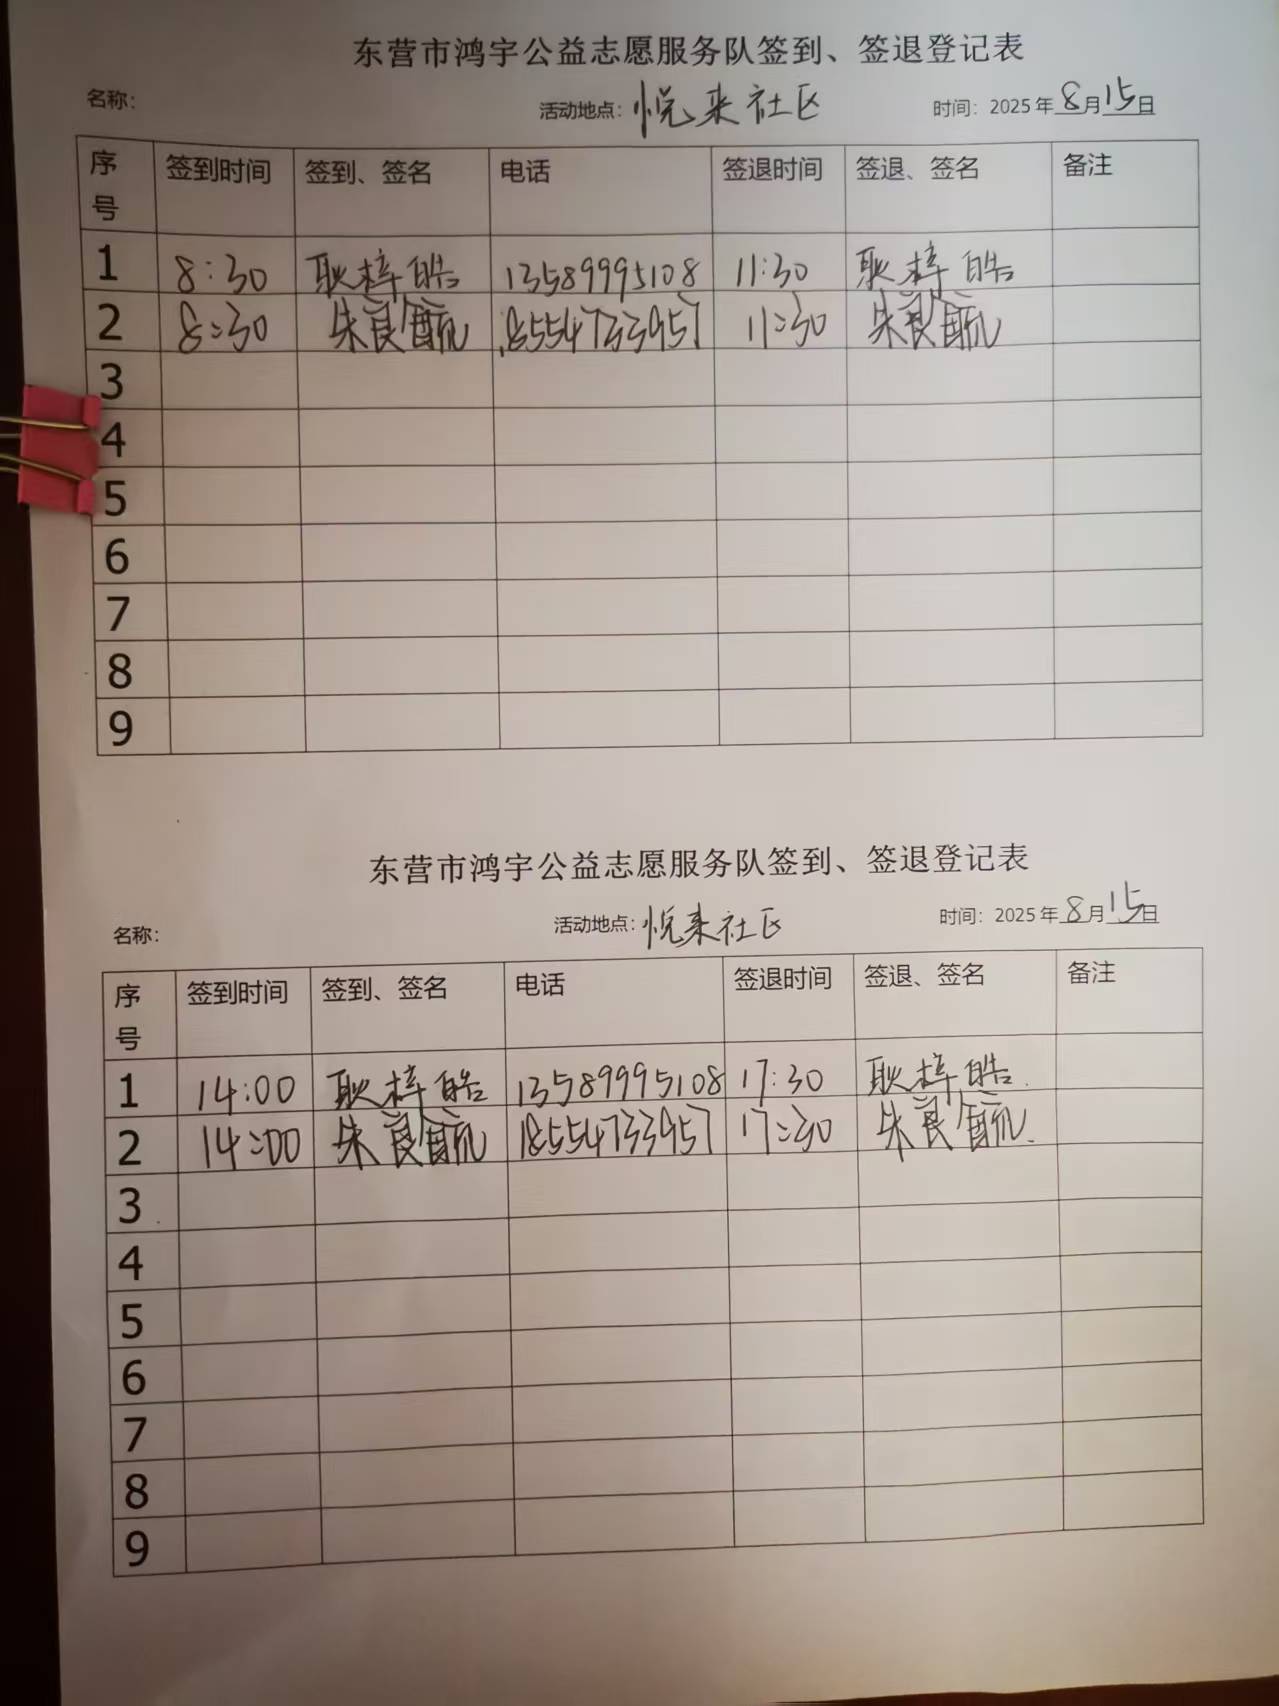 东营市鸿宇公益志愿服务队签到、签退登记表
名称： 活动地点：悦来社区 时间：2025年8月15日
序号 签到时间 签到、签名 电话 签退时间 签退、签名 备注
1 8:30 耿梓皓 13589995108 11:30 耿梓皓
2 8:30 朱良 18554733957 11:30 朱良
3
4
5
6
7
8
9
东营市鸿宇公益志愿服务队签到、签退登记表
名称： 活动地点：悦来社区 时间：2025年8月15日
序号 签到时间 签到、签名 电话 签退时间 签退、签名 备注
1 14:00 耿梓皓 13589995108 17:30 耿梓皓
2 14:00 朱良 18554733957 17:30 朱良
3
4
5
6
7
8
9